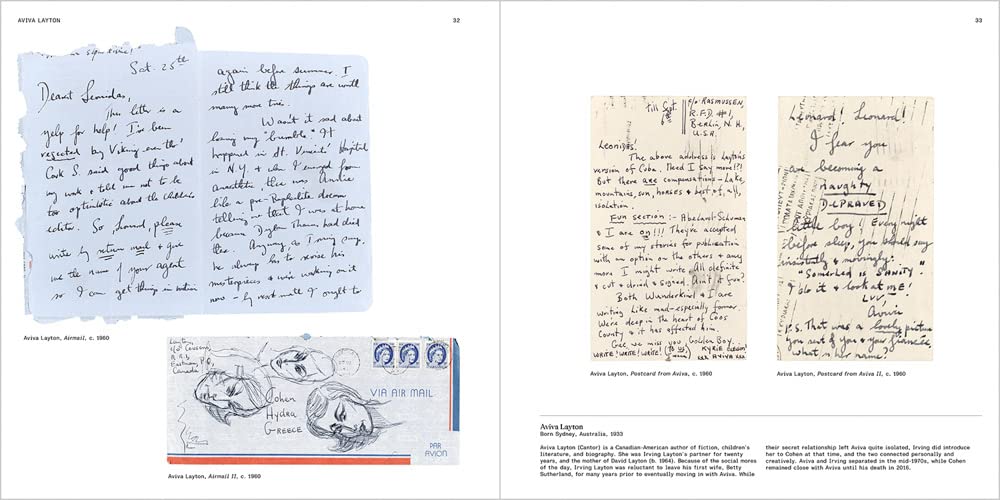 AVIVA LAYTON
32
Sat. 25th
Dearest Leonidas,
This letter is a
yelp for help! I've been
rejected by Viking even tho'
Cork S. said good things about
my work & told me not to be
too optimistic about the childrens
editor. So Leonard, please
write by return mail & give
me the name of your agent
so I can get things in motion
again before summer. I
still think the things are worth
many more tries.
Wasn't it sad about
losing my "bumble" It
happened in St. Vincents' Hospital
in N.Y. & when I emerged from
anaesthetic, there was Annie
like a pre-Raphaelite dream
telling me that I was at home
because Dylan Thomas had died
there. Anyway, so I may sing,
he always has to revise his
masterpieces & we're working on it
now – by next mail I ought to
Aviva Layton, Airmail, c. 1960
Layton,
Canada
Cohen
Hydra
GREECE
VIA AIR MAIL
PAR
AVION
Aviva Layton, Airmail II, c. 1960
33
till Sept.
c/o RASMUSSEN,
R.F.D. #1,
Berlin, N.H.,
U.S.A.
Leonidas!
The above address is Layton's
version of Cuba. Need I say more!?!
But there are compensations – Lake,
mountains, sun, horses & best of, all,
isolation.
FUN SECTION :- Abelard-Schuman
& I are on!!! They're accepted
some of my stories for publication
with an option on the others & any
more I might write. All definite
& cut & dried & signed. Ain't it fun?
Both Wunderkind & I are
writing like mad – especially former.
Were deep in the heart of Coos
County & it has affected him.
Gee, we miss you, Golden Boy.
WRITE! WRITE! WRITE!
KYRIE
xxx AVIVA xxx
Aviva Layton, Postcard from Aviva, c. 1960
Leonard! Leonard!
I fear you
are becoming a
naughty
DEPRAVED
little boy! Every night
before sleep, you should say
insistently & movingly:
"Somerhed is SANITY"
I do it & look at ME!
LUV'
Aviva
p.s. That was a lovely picture
you sent of you & your fiancée,
what is her name?
Aviva Layton, Postcard from Aviva II, c. 1960
Aviva Layton
Born Sydney, Australia, 1933
Aviva Layton (Cantor) is a Canadian-American author of fiction, children's
literature, and biography. She was Irving Layton's partner for twenty
years, and the mother of David Layton (b. 1964). Because of the social mores
of the day, Irving Layton was reluctant to leave his first wife, Betty
Sutherland, for many years prior to eventually moving in with Aviva. While
their secret relationship left Aviva quite isolated, Irving did introduce
her to Cohen at that time, and the two connected personally and
creatively. Aviva and Irving separated in the mid-1970s, while Cohen
remained close with Aviva until his death in 2016.